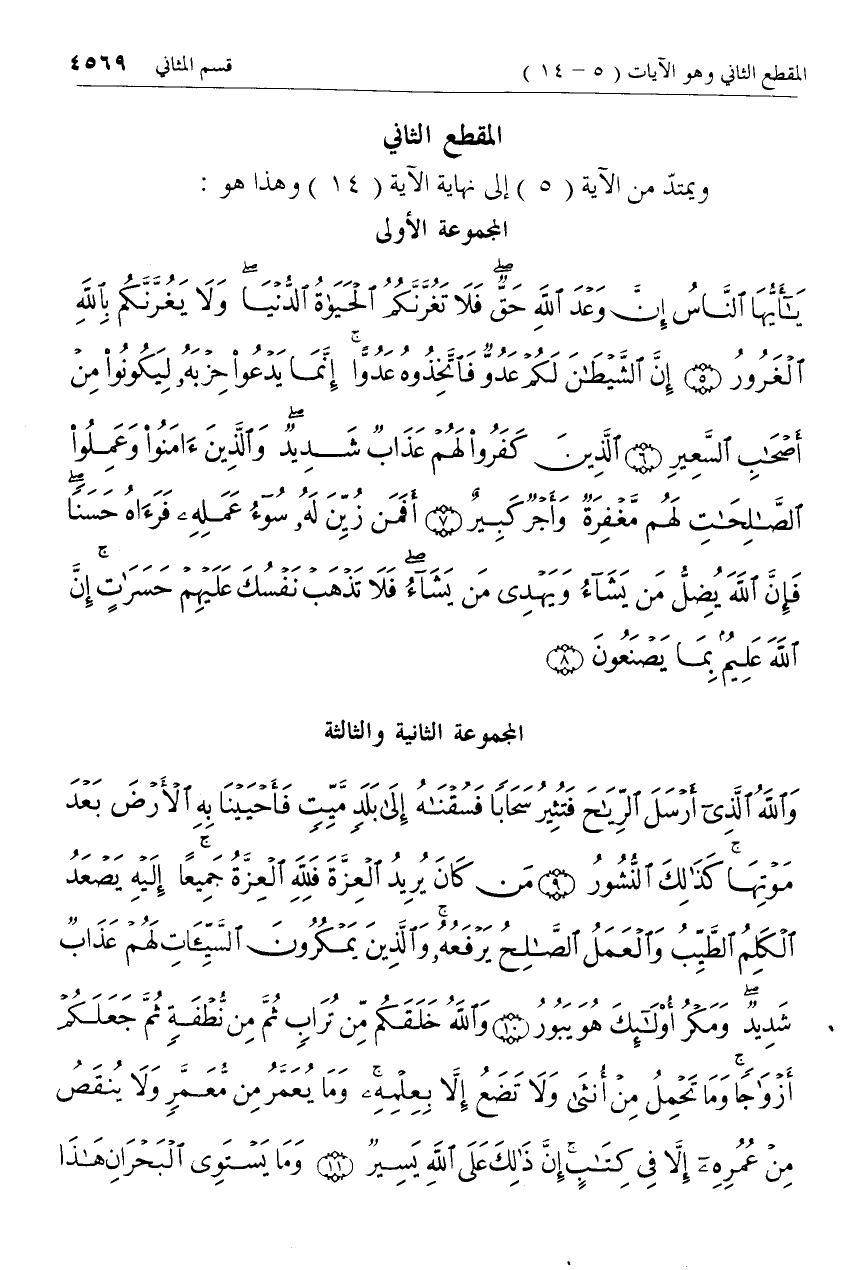 المقطع الثاني وهو الآيات ( ٥ – ١٤ ) قسم المثاني ٤٥٦٩
المقطع الثاني
ويمتدّ من الآية ( ٥ ) إلى نهاية الآية ( ١٤ ) وهذا هو :
المجموعة الأولى
يَٰٓأَيُّهَا ٱلنَّاسُ إِنَّ وَعْدَ ٱللَّهِ حَقٌّۖ فَلَا تَغُرَّنَّكُمُ ٱلْحَيَوٰةُ ٱلدُّنْيَاۖ وَلَا يَغُرَّنَّكُم بِٱللَّهِ
ٱلْغَرُورُ ﴿٥﴾ إِنَّ ٱلشَّيْطَٰنَ لَكُمْ عَدُوٌّ فَٱتَّخِذُوهُ عَدُوًّاۚ إِنَّمَا يَدْعُوا۟ حِزْبَهُۥ لِيَكُونُوا۟ مِنْ
أَصْحَٰبِ ٱلسَّعِيرِ ﴿٦﴾ ٱلَّذِينَ كَفَرُوا۟ لَهُمْ عَذَابٌ شَدِيدٌۖ وَٱلَّذِينَ ءَامَنُوا۟ وَعَمِلُوا۟
ٱلصَّٰلِحَٰتِ لَهُم مَّغْفِرَةٌ وَأَجْرٌ كَبِيرٌ ﴿٧﴾ أَفَمَن زُيِّنَ لَهُۥ سُوٓءُ عَمَلِهِۦ فَرَءَاهُ حَسَنًاۖ
فَإِنَّ ٱللَّهَ يُضِلُّ مَن يَشَآءُ وَيَهْدِى مَن يَشَآءُۖ فَلَا تَذْهَبْ نَفْسُكَ عَلَيْهِمْ حَسَرَٰتٍۚ إِنَّ
ٱللَّهَ عَلِيمٌۢ بِمَا يَصْنَعُونَ ﴿٨﴾
المجموعة الثانية والثالثة
وَٱللَّهُ ٱلَّذِىٓ أَرْسَلَ ٱلرِّيَٰحَ فَتُثِيرُ سَحَابًا فَسُقْنَٰهُ إِلَىٰ بَلَدٍ مَّيِّتٍ فَأَحْيَيْنَا بِهِ ٱلْأَرْضَ بَعْدَ
مَوْتِهَاۚ كَذَٰلِكَ ٱلنُّشُورُ ﴿٩﴾ مَن كَانَ يُرِيدُ ٱلْعِزَّةَ فَلِلَّهِ ٱلْعِزَّةُ جَمِيعًاۚ إِلَيْهِ يَصْعَدُ
ٱلْكَلِمُ ٱلطَّيِّبُ وَٱلْعَمَلُ ٱلصَّٰلِحُ يَرْفَعُهُۥۚ وَٱلَّذِينَ يَمْكُرُونَ ٱلسَّيِّـَٔاتِ لَهُمْ عَذَابٌ
شَدِيدٌۖ وَمَكْرُ أُو۟لَٰٓئِكَ هُوَ يَبُورُ ﴿١٠﴾ وَٱللَّهُ خَلَقَكُم مِّن تُرَابٍ ثُمَّ مِن نُّطْفَةٍ ثُمَّ جَعَلَكُمْ
أَزْوَٰجًاۚ وَمَا تَحْمِلُ مِنْ أُنثَىٰ وَلَا تَضَعُ إِلَّا بِعِلْمِهِۦۚ وَمَا يُعَمَّرُ مِن مُّعَمَّرٍ وَلَا يُنقَصُ
مِنْ عُمُرِهِۦٓ إِلَّا فِى كِتَٰبٍۚ إِنَّ ذَٰلِكَ عَلَى ٱللَّهِ يَسِيرٌ ﴿١١﴾ وَمَا يَسْتَوِى ٱلْبَحْرَانِ هَٰذَا